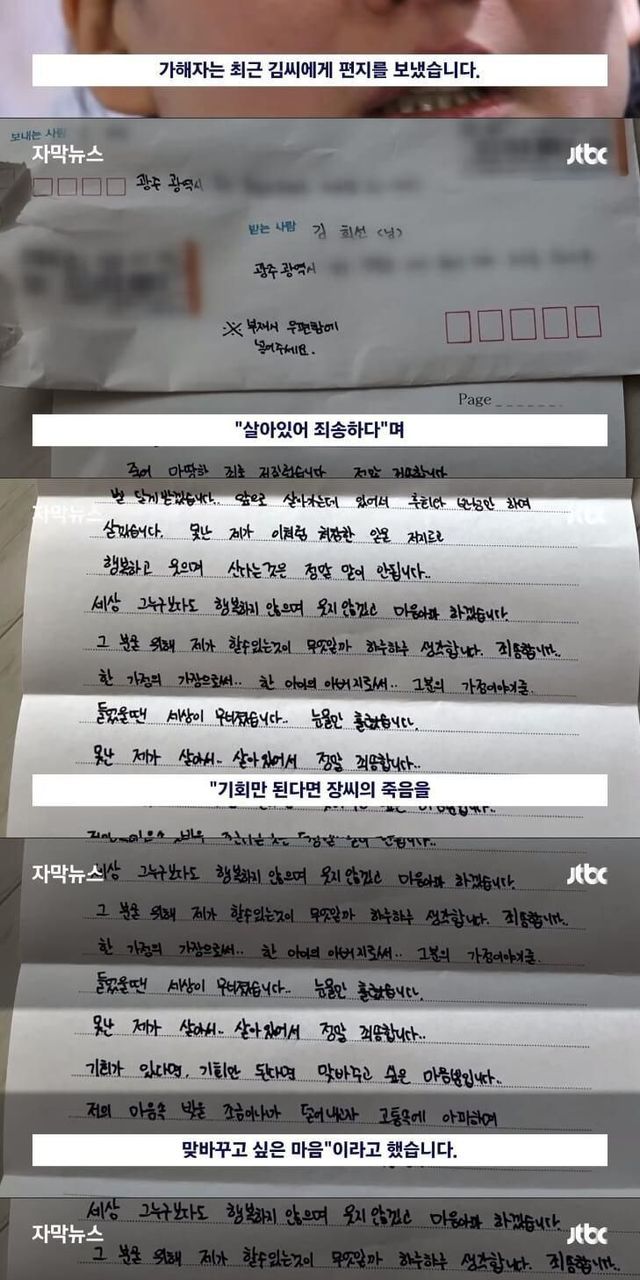 가해자는 최근 김씨에게 편지를 보냈습니다.
보내는 사람
자막뉴스
jtbc
광주 광역시
받는 사람 김 희선 (님)
광주 광역시
※ 부재시 우편함에
넣어주세요.
Page
"살아있어 죄송하다"며
죽어 마땅한 죄를 저질렀습니다 정말 죄송합니다
벌 달게받겠습니다.. 앞으로 살아가는데 있어서 하며
자막뉴스
살겠습니다. 못난 제가 이처럼 일을 저지르고
행복하고 웃으며 산다는것은 정말 말이 안됩니다..
세상 그누구보다도 행복하지 않으며 웃지 않겠고 마음아파 하겠습니다.
그 분을 위해 제가 할수있는것이 무엇일까 하루하루 생각합니다. 죄송합니다.
한 가정의 가장으로써.. 한 아이의 아버지로써.. 그분의 가정이야기를
들었을땐 세상이 무너졌습니다.. 눈물만 흘렸습니다.
못난 제가 살아서.. 살아있어서 정말 죄송합니다..
"기회만 된다면 장씨의 죽음을
자막뉴스
jtbc
세상 그누구보다도 행복하지 않으며 웃지 않겠고 마음아파 하겠습니다.
그 분을 위해 제가 할수있는것이 무엇일까 하루하루 생각합니다. 죄송합니다.
한 가정의 가장으로써.. 한 아이의 아버지로써.. 그분의 가정이야기를
들었을땐 세상이 무너졌습니다.. 눈물만 흘렸습니다.
못난 제가 살아서.. 살아있어서 정말 죄송합니다..
기회가 있다면, 기회만 된다면 맞바꾸고 싶은 마음뿐입니다..
저의 마음속 빚을 조금이나마 덜어내고자 고통속에 아파하며
맞바꾸고 싶은 마음"이라고 했습니다.
세상 그누구보다도 행복하지 않으며 웃지 않겠고 마음아파 하겠습니다.
자막뉴스
jtbc
그 분을 위해 제가 할수있는것이 무엇일까 하루하루 생각합니다. 죄송합니다.